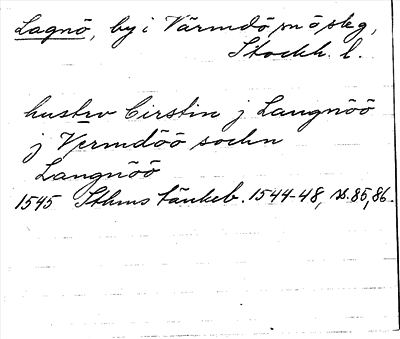 Lagnö, by i Värmdö sn ö skg,
Stockh. l.
hustrv Cirstin j Langnöö
j Vermdöö sochn
Langnöö
1545 Sthms tänkeb. 1544-48, s. 85, 86.